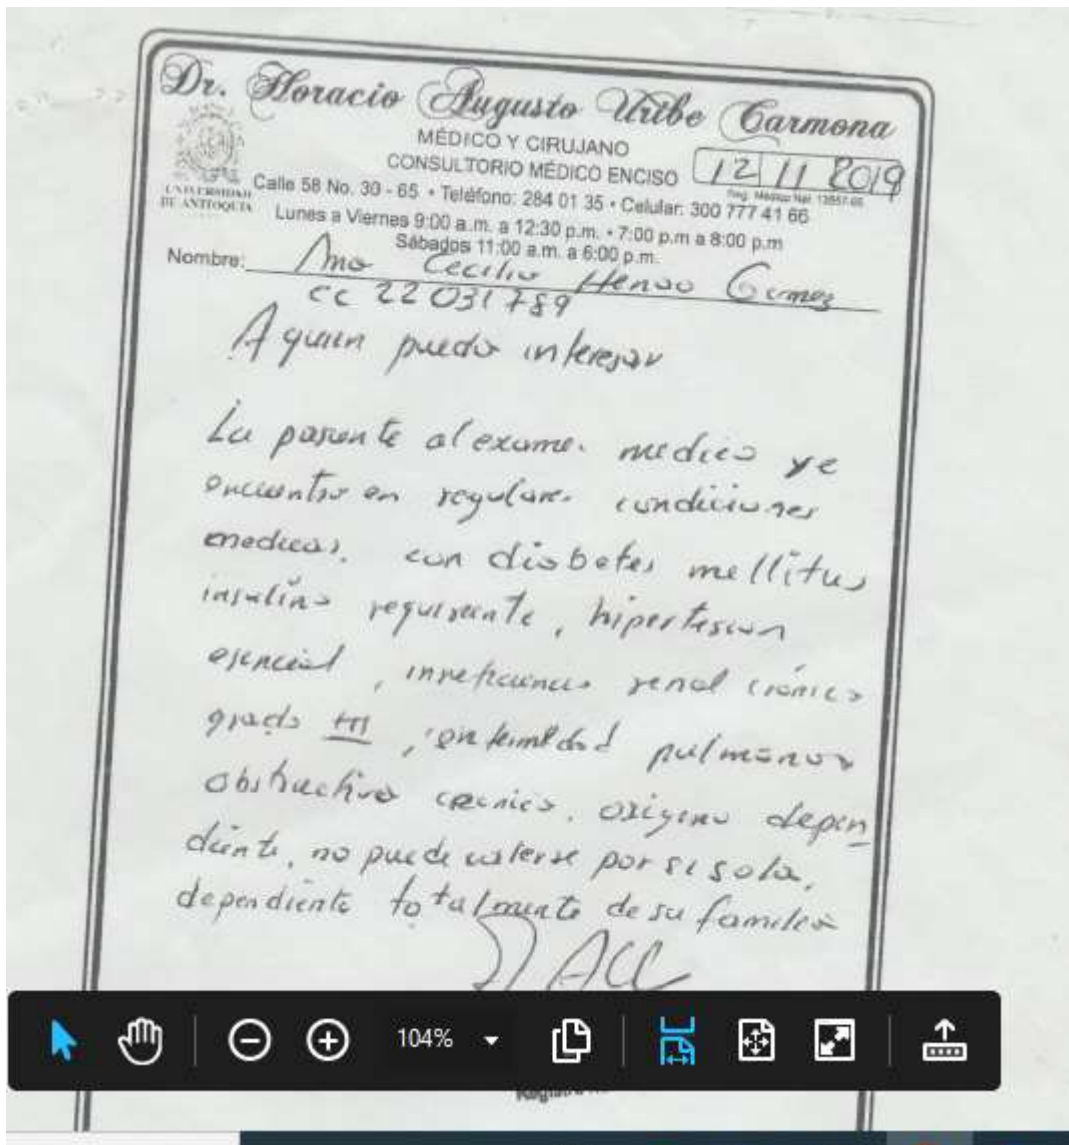 Dr. Horacio Augusto Uribe Carmona
MÉDICO Y CIRUJANO
CONSULTORIO MÉDICO ENCISO
12 11 2019
UNIVERSIDAD
DE ANTIOQUIA
Calle 58 No. 30 - 65 • Teléfono: 284 01 35 • Celular: 300 777 41 66
Lunes a Viernes 9:00 a.m. a 12:30 p.m. • 7:00 p.m a 8:00 p.m
Sábados 11:00 a.m. a 6:00 p.m.
Nombre: Ana Cecilia Henao Gomez
cc 22031789
A quien pueda interesar
La paciente al examen medico se
encuentra en regulares condiciones
medicas, con diabetes mellitus
insulino requiriente, hipertesion
esencial, insuficiencia renal crónica
grado III, enfermedad pulmonar
obstructiva cronica, oxigeno depen
diente, no puede valerse por si sola,
dependiente totalmente de su familia
104%